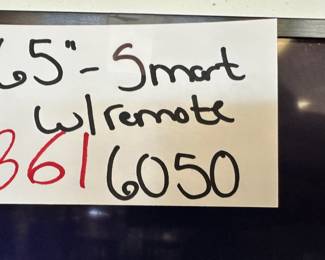 65"- Smart
w/remote
361 6050